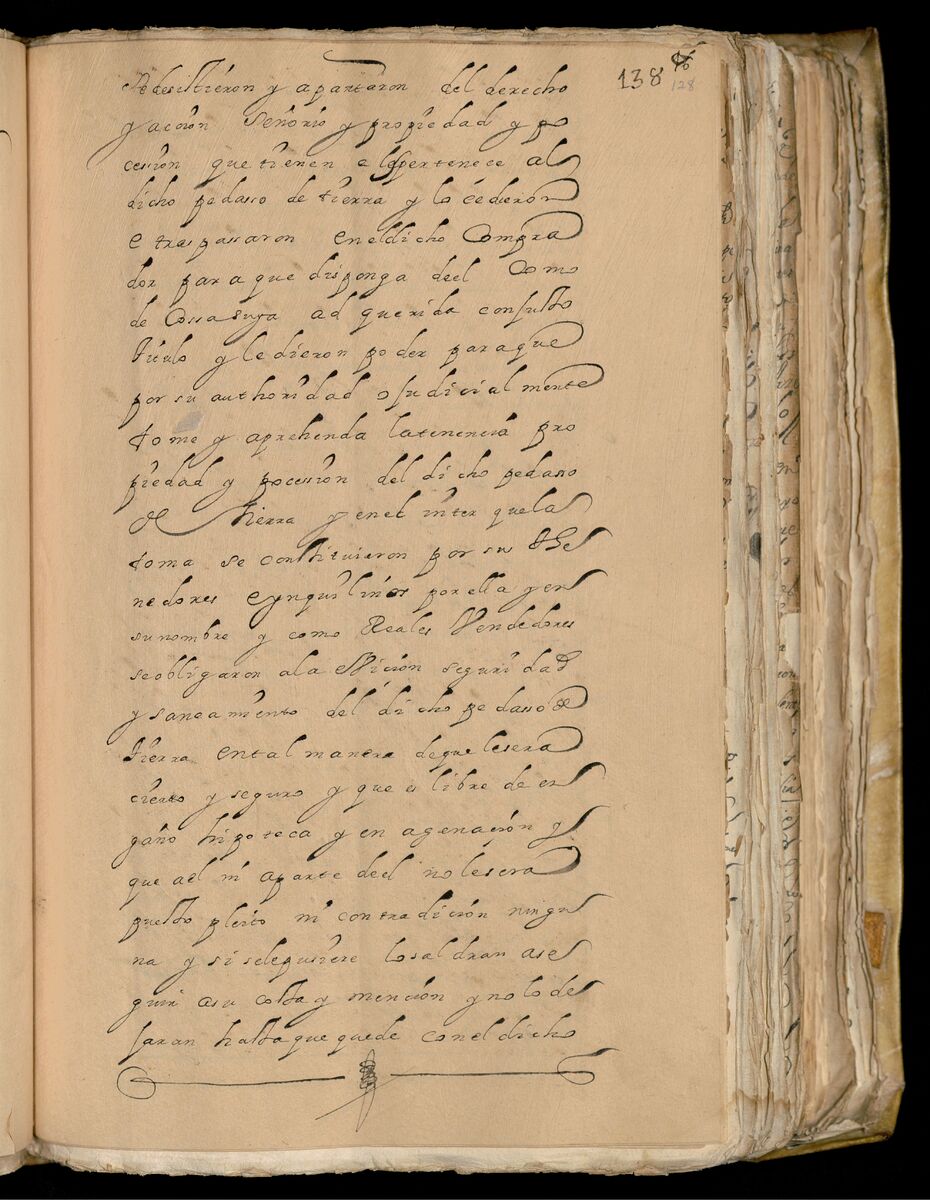 138
128
se desistieron y apartaron del derecho
y accion señorio y propiedad y po
cession que tienen e les pertenece al
dicho pedasso de tierra y lo cedieron
e traspassaron en el dicho Compra
dor para que disponga del Como
de Cossa suya adquerida con justo
titulo y le dieron poder para que
por su authoridad o judicialmente
tome y aprehenda la tenencia pro
piedad y pocession del dicho pedasso
de tierra y en el inter que la
toma se constituieron por sus the
nedores e ynquilinos por ella y en
su nombre y como Reales Vendedores
se obligaron a la Vicion seguridad
y saneamiento del dicho pedasso de
tierra en tal manera de que le sera
cierto y seguro y que es libre de en
gaño hipoteca y en agenación y
que a el ni a parte del no le sera
puesto pleito ni contradición ningu
na y si se le pusiere lo saldran a se
guir a su costa y mención y no lo de
jaran hasta que quede con el dicho